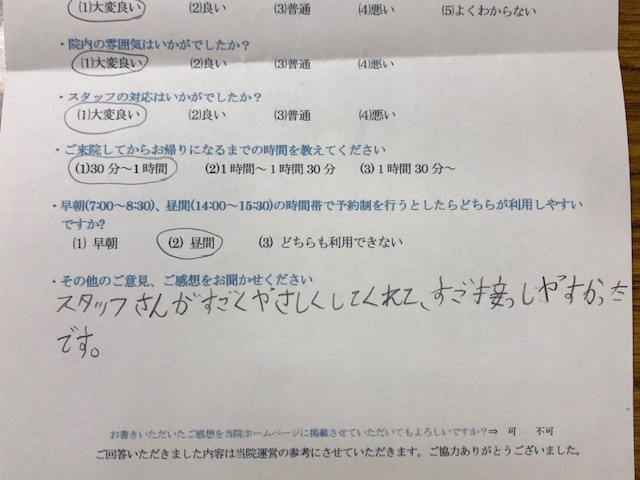 (1)大変良い (2)良い (3)普通 (4)悪い (5)よくわからない
・院内の雰囲気はいかがでしたか?
(1)大変良い (2)良い (3)普通 (4)悪い
・スタッフの対応はいかがでしたか?
(1)大変良い (2)良い (3)普通 (4)悪い
・ご来院してからお帰りになるまでの時間を教えてください
(1)30分～1時間 (2)1時間～1時間30分 (3)1時間30分～
・早朝(7:00～8:30)、昼間(14:00～15:30)の時間帯で予約制を行うとしたらどちらが利用しやすい
ですか?
(1) 早朝 (2) 昼間 (3) どちらも利用できない
・その他のご意見、ご感想をお聞かせください
スタッフさんがすごくやさしくしてくれて、すご接っしやすかった
です。
お書きいただいたご感想を当院ホームページに掲載させていただいてもよろしいですか?⇒ 可 不可
ご回答いただきました内容は当院運営の参考にさせていただきます。ご協力ありがとうございました。